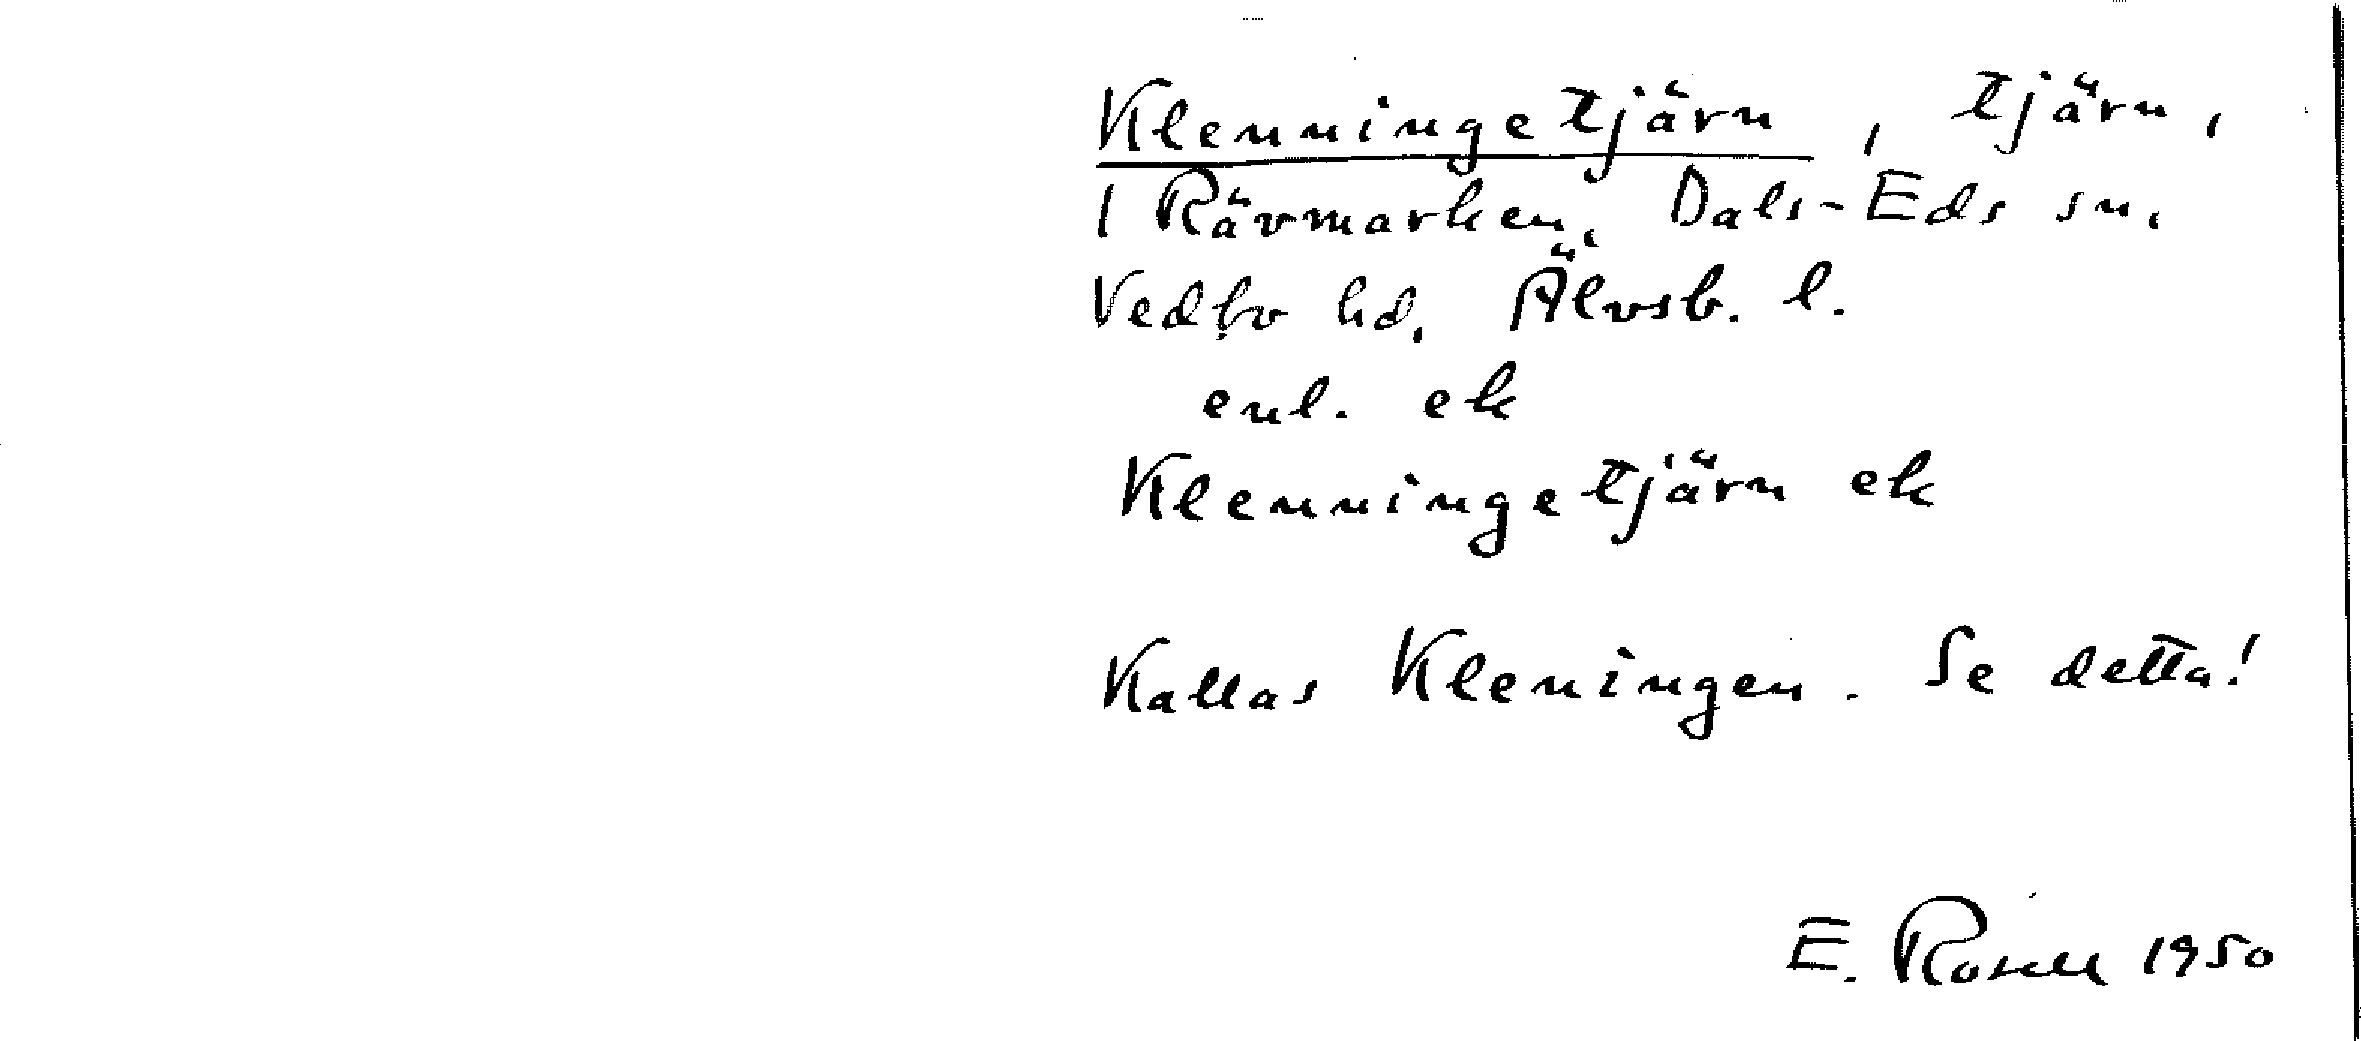 Klenningetjärn, tjärn,
I Rävmarken, Dals-Eds sn,
Vedbo hd, Älvsb. l.
enl. ek
Klenningetjärn ek
Kallas Kleningen. Se detta!
E. Rosell 1950